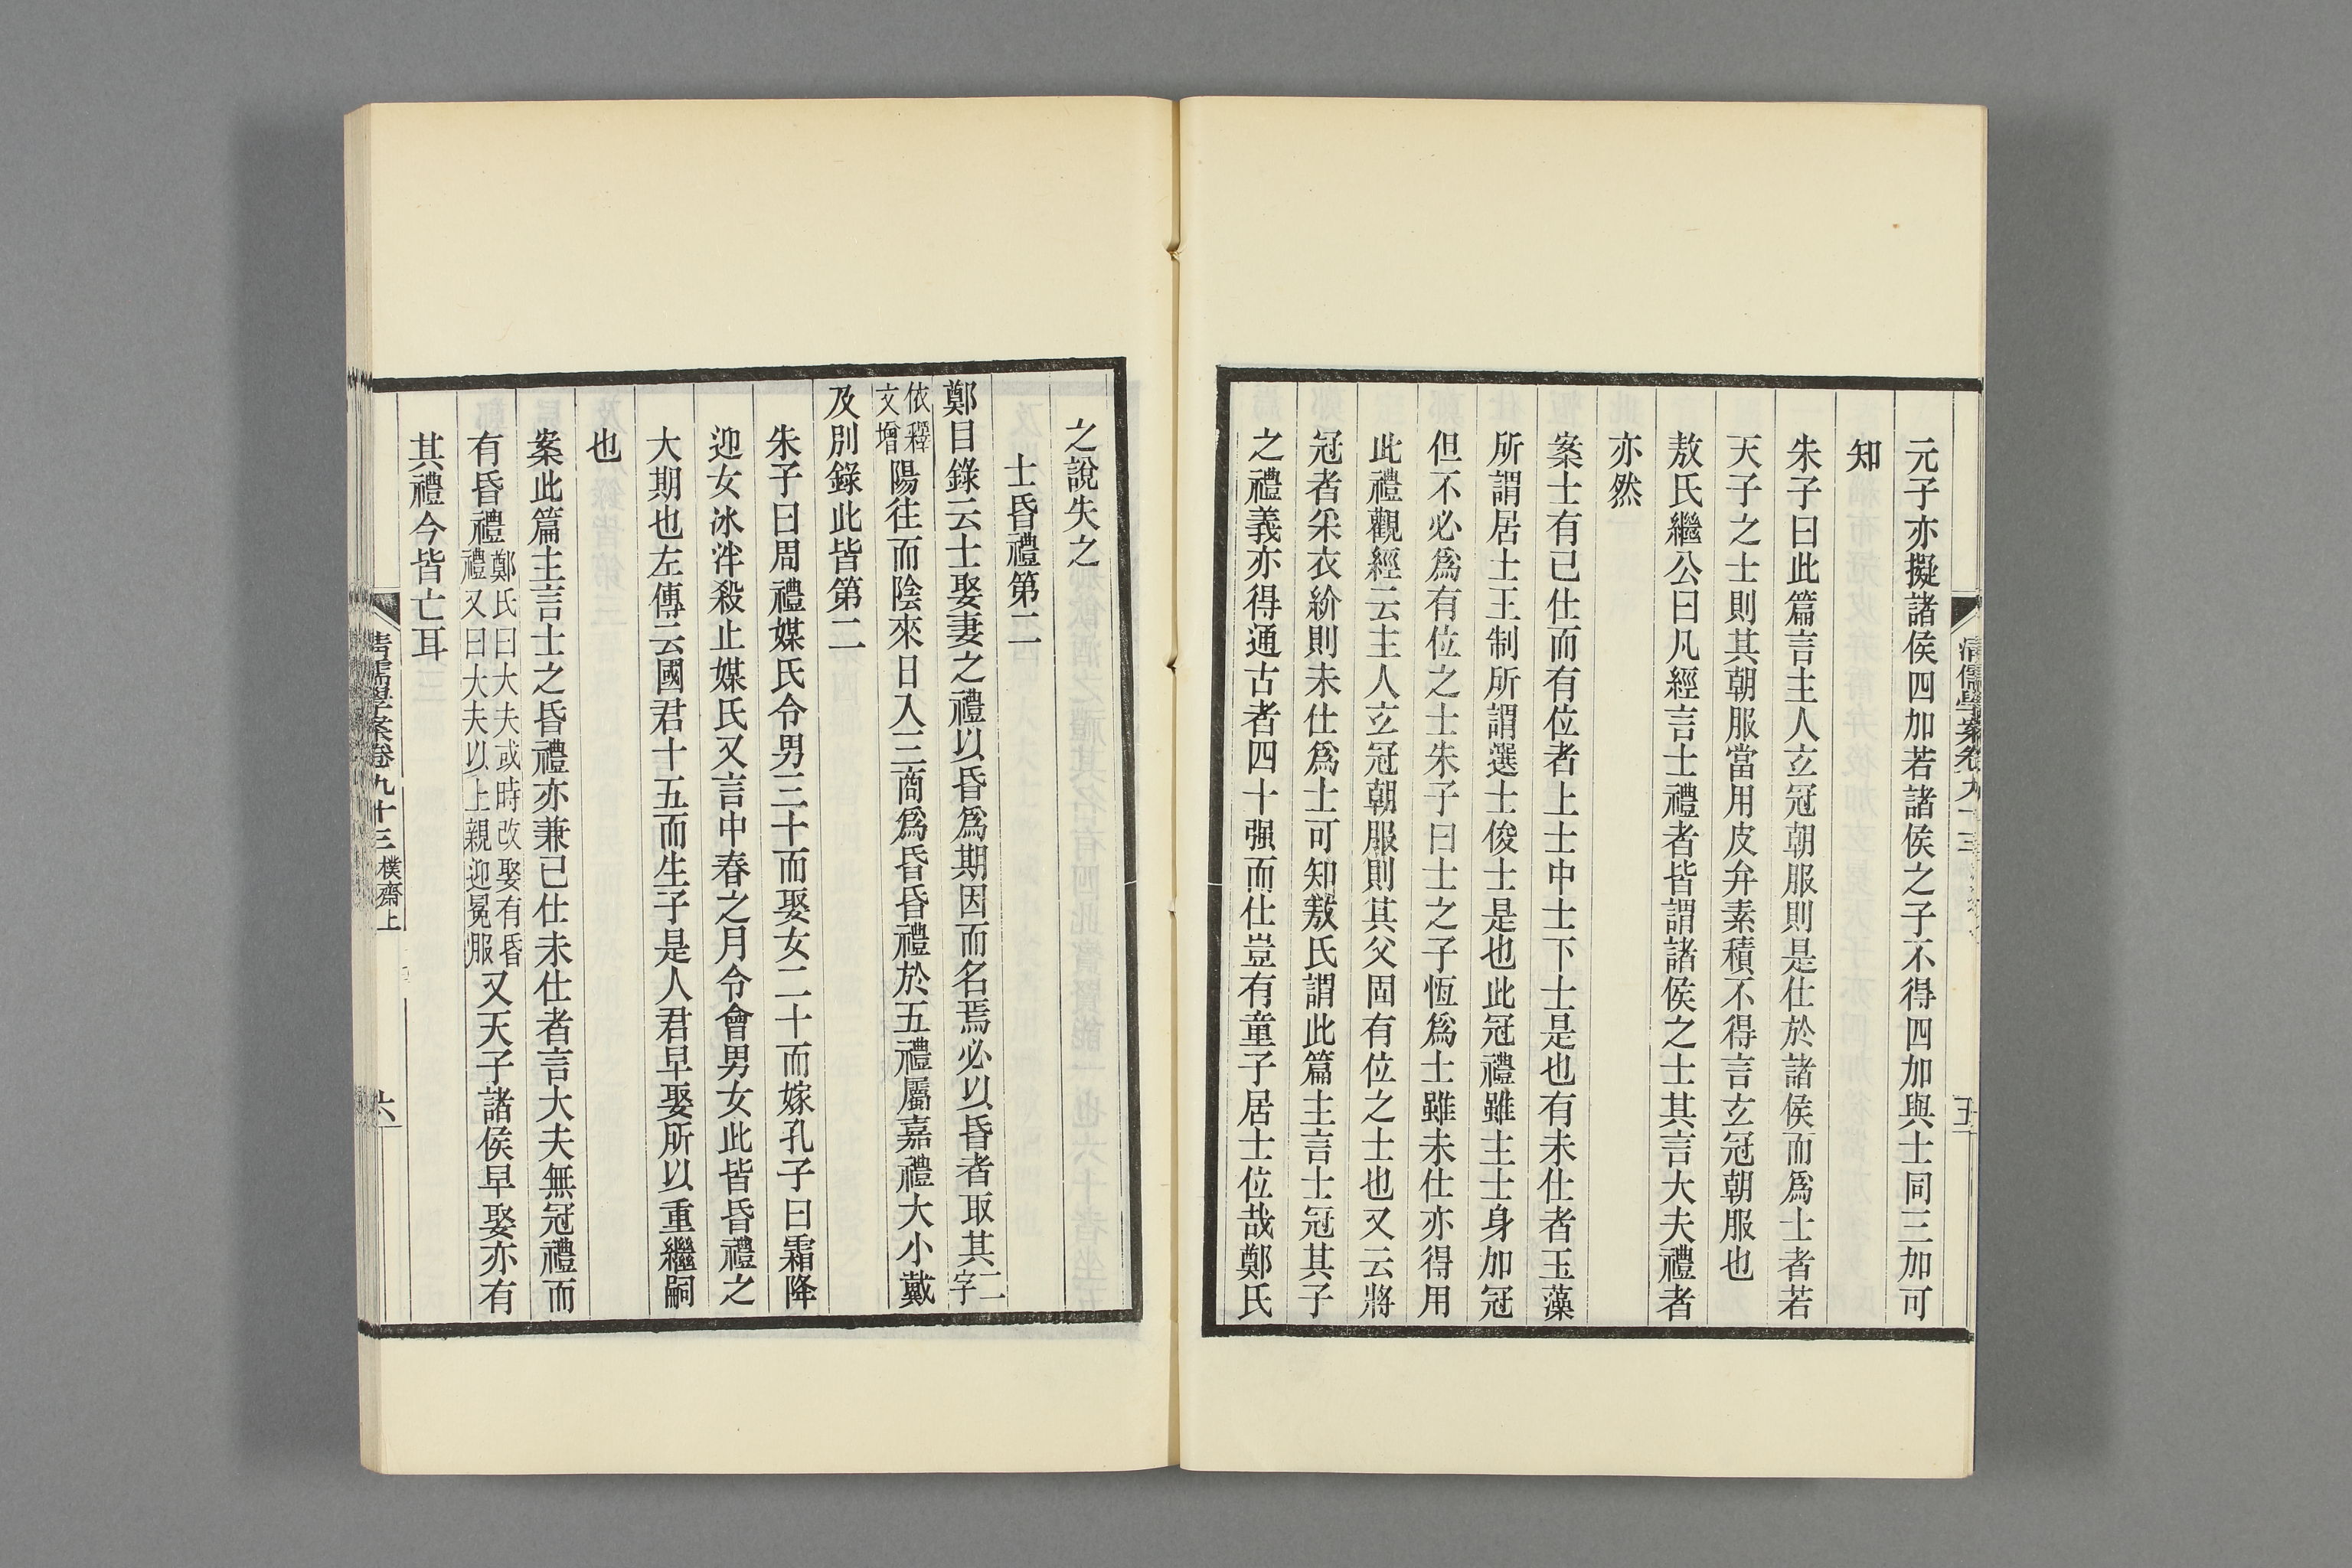 元子亦擬諸侯四加若諸侯之子不得四加與士同三加可
知
朱子曰此篇言主人玄冠朝服則是仕於諸侯而爲士者若
天子之士則其朝服當用皮弁素積不得言玄冠朝服也
敖氏繼公曰凡經言士禮者皆謂諸侯之士其言大夫禮者
亦然
案士有已仕而有位者上士中士下士是也有未仕者玉藻
所謂居士王制所謂選士俊士是也此冠禮雖主士身加冠
但不必爲有位之士朱子曰士之子恆爲士雖未仕亦得用
此禮觀經云主人玄冠朝服則其父固有位之士也又云將
冠者采衣紒則未仕爲士可知敖氏謂此篇主言士冠其子
之禮義亦得通古者四十强而仕豈有童子居士位哉鄭氏
清儒學案卷九十三
五
之說失之
士昏禮第二
鄭目錄云士娶妻之禮以昏爲期因而名焉必以昏者取其二字
依釋文增陽往而陰來日入三商爲昏昏禮於五禮屬嘉禮大小戴
及別錄此皆第二
朱子曰周禮媒氏令男三十而娶女二十而嫁孔子曰霜降
迎女冰泮殺止媒氏又言中春之月令會男女此皆昏禮之
大期也左傳云國君十五而生子是人君早娶所以重繼嗣
也
案此篇主言士之昏禮亦兼已仕未仕者言大夫無冠禮而
有昏禮鄭氏曰大夫或時改娶有昏禮又曰大夫以上親迎冕服又天子諸侯早娶亦有
其禮今皆亡耳
清儒學案卷九十三 樸齋上
六